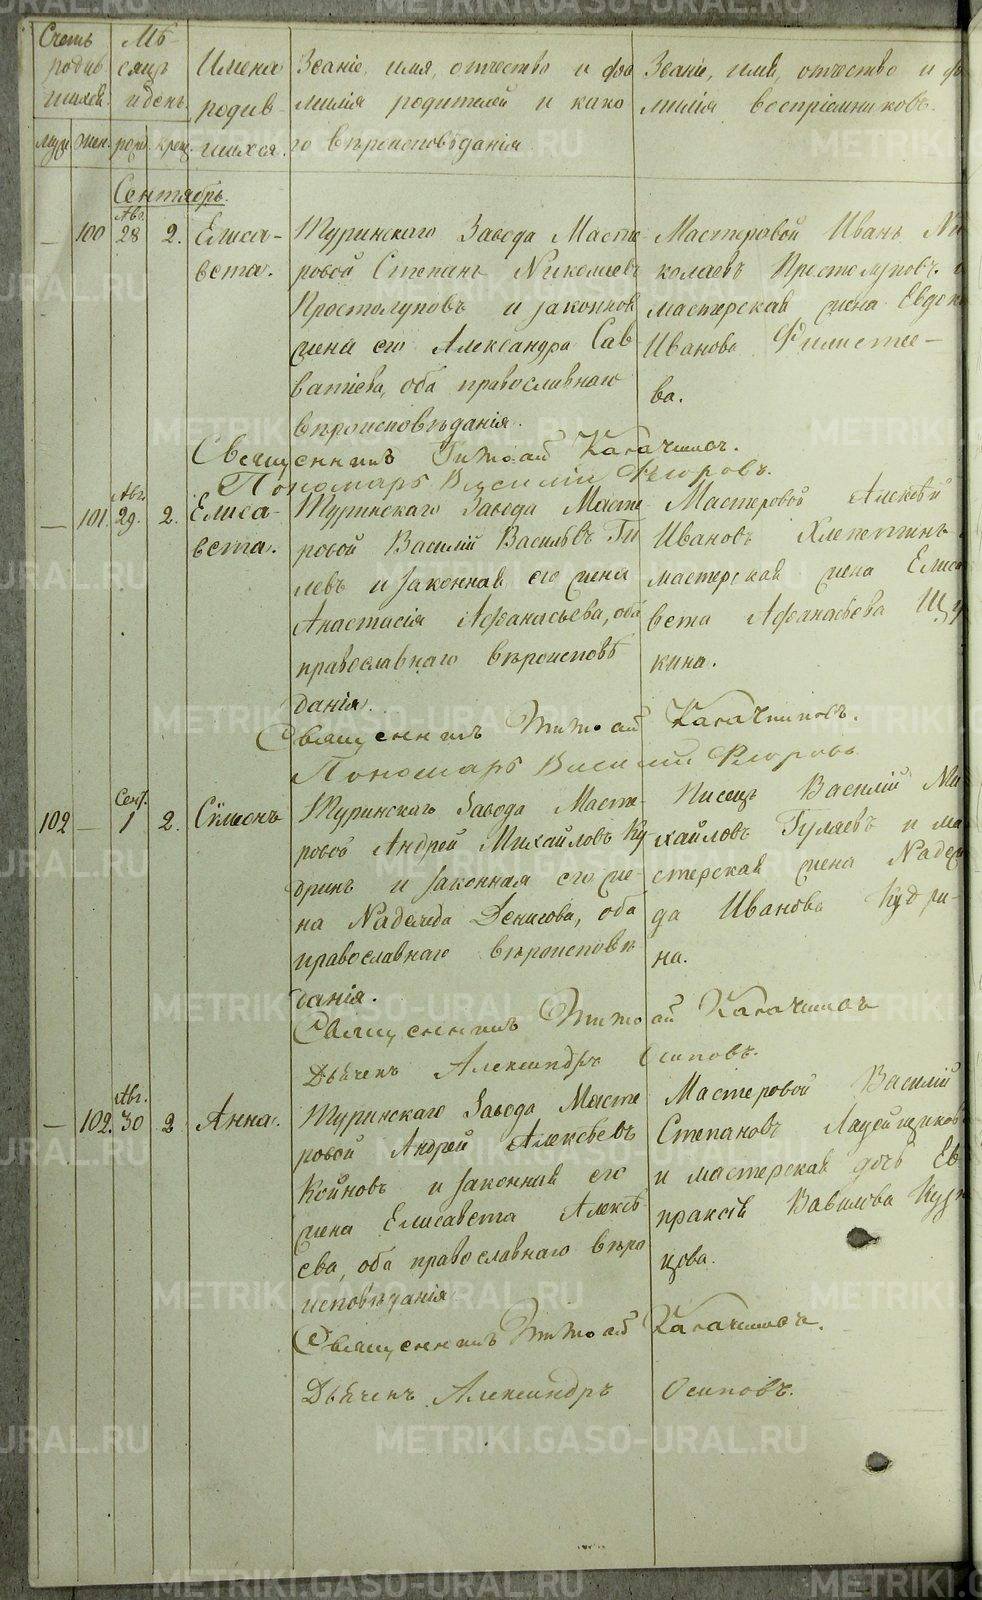 Счетъ родив шихся.
Мѣ- сяцъ и день.
Имена родив- шихся.
Званіе, имя, отчество и фа милія родителей и како го вѣроисповѣданія
Званіе, имя, отчество и фа милія воспріемниковъ.
муж. жен. рож. крещ.
Сентябрь.
— 100 Авг. 28 2. Елиса- вета.
Туринскаго Завода Масте
ровой Степанъ Николаевъ
Простолуповъ и законная
жена его Александра Сав
ватіева, оба православнаго
вѣроисповѣданія.
Мастеровой Иванъ Ни
колаевъ Простолуповъ. и
мастерская жена Евдок
Иванова Филистее-
ва.
Священникъ Титъ
Пономарь Василій Флоровъ.
— 101. Авг. 29. 2. Елиса- вета.
Туринскаго Завода Масте
ровой Василій Васильевъ Ги
левъ и законная его жена
Анастасія Афанасьева, оба
православнаго вѣроисповѣ
данія.
Мастеровой Алексѣй
Ивановъ Хлепетинъ
мастерская жена Елиса
вета Афанасьева Щу
кина.
Священникъ
Пономарь Василій Флоровъ
102 — Сент. 1 2. Сѵмеонъ
Туринскаго Завода Масте-
ровой Андрей Михайловъ Ку
дринъ и законная его же-
на Надежда Денисова, оба
православнаго вѣроисповѣ
данія.
Писецъ Василій Ми
хайловъ Гуляевъ и ма
стерская жена Надеж
да Иванова Кудри-
на.
Священникъ
Дьячекъ Александръ Осиповъ.
— 102. Авг. 30 2 Анна.
Туринскаго Завода Масте
ровой Андрей Алексѣевъ
Койновъ и законная его
жена Елисавета Алексѣ
ева, оба православнаго вѣро
исповѣданія
Мастеровой Василій
Степановъ
и мастерская дочь Ев
праксія Вавилова Кузн
цова.
Священникъ
Дьячекъ Александръ Осиповъ.
METRIKI.GASO-URAL.RU